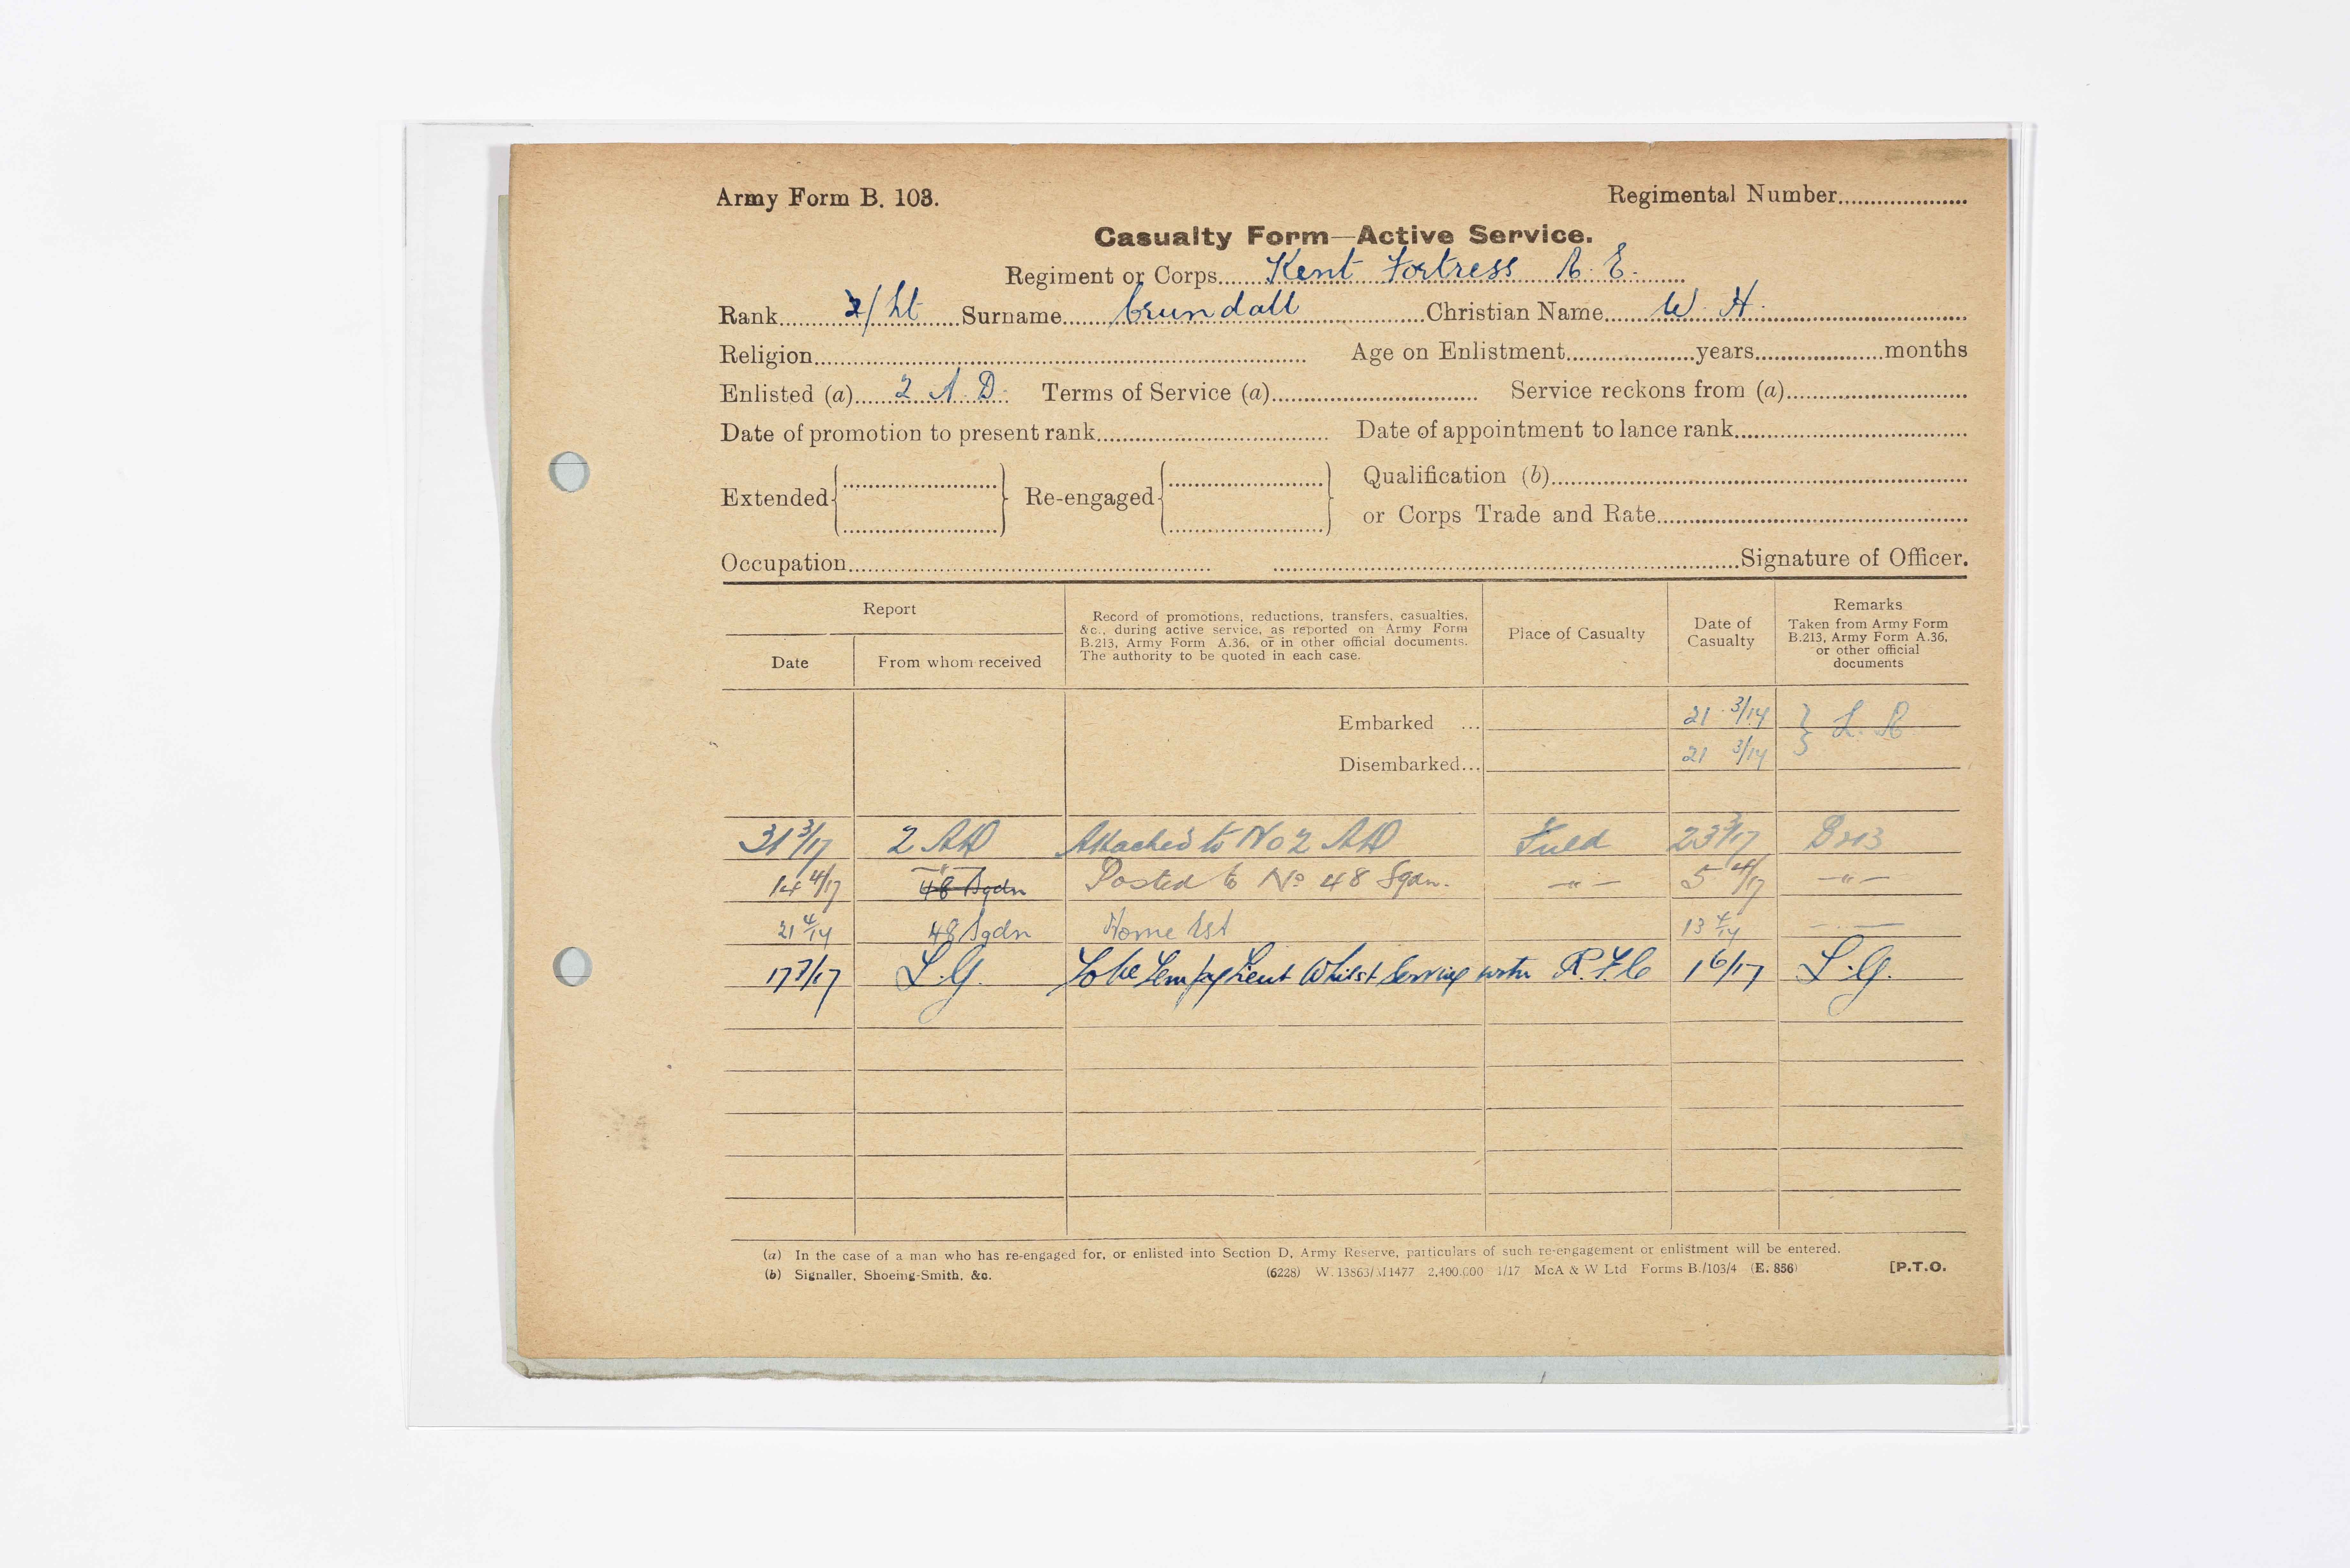 Army Form B. 103.
Regimental Number
Casualty Form—Active Service.
Regiment or Corps Kent Fortress R. E.
Rank 2/Lt Surname Crundall Christian Name W. H.
Religion Age on Enlistment years months
Enlisted (a) 2 A. D. Terms of Service (a) Service reckons from (a)
Date of promotion to present rank Date of appointment to lance rank
Extended Re-engaged Qualification (b)
or Corps Trade and Rate
Occupation Signature of Officer.
Report
Date
From whom received
Record of promotions, reductions, transfers, casualties,
&c., during active service, as reported on Army Form
B.213, Army Form A.36, or in other official documents.
The authority to be quoted in each case.
Place of Casualty
Date of
Casualty
Remarks
Taken from Army Form
B.213, Army Form A.36,
or other official
documents
Embarked ... 21 3/17 L. R
Disembarked... 21 3/17
31 3/17 2 AD Attached to No 2 AD Field 23 3/17 B213
14 4/17 -"- 48 Sqdn Posted to No 48 Sqdn. -"- 5 4/17 -"-
21 4/17 48 Sqdn Home Est 13 4/17
17 7/17 L.G. To be Temp Lieut Whilst Serving with R.F.C 1 6/17 L.G.
(a) In the case of a man who has re-engaged for, or enlisted into Section D, Army Reserve, particulars of such re-engagement or enlistment will be entered.
(b) Signaller, Shoeing-Smith, &c. (6228) W. 13863/M1477 2,400,000 1/17 McA & W Ltd Forms B./103/4 (E. 856) [P.T.O.